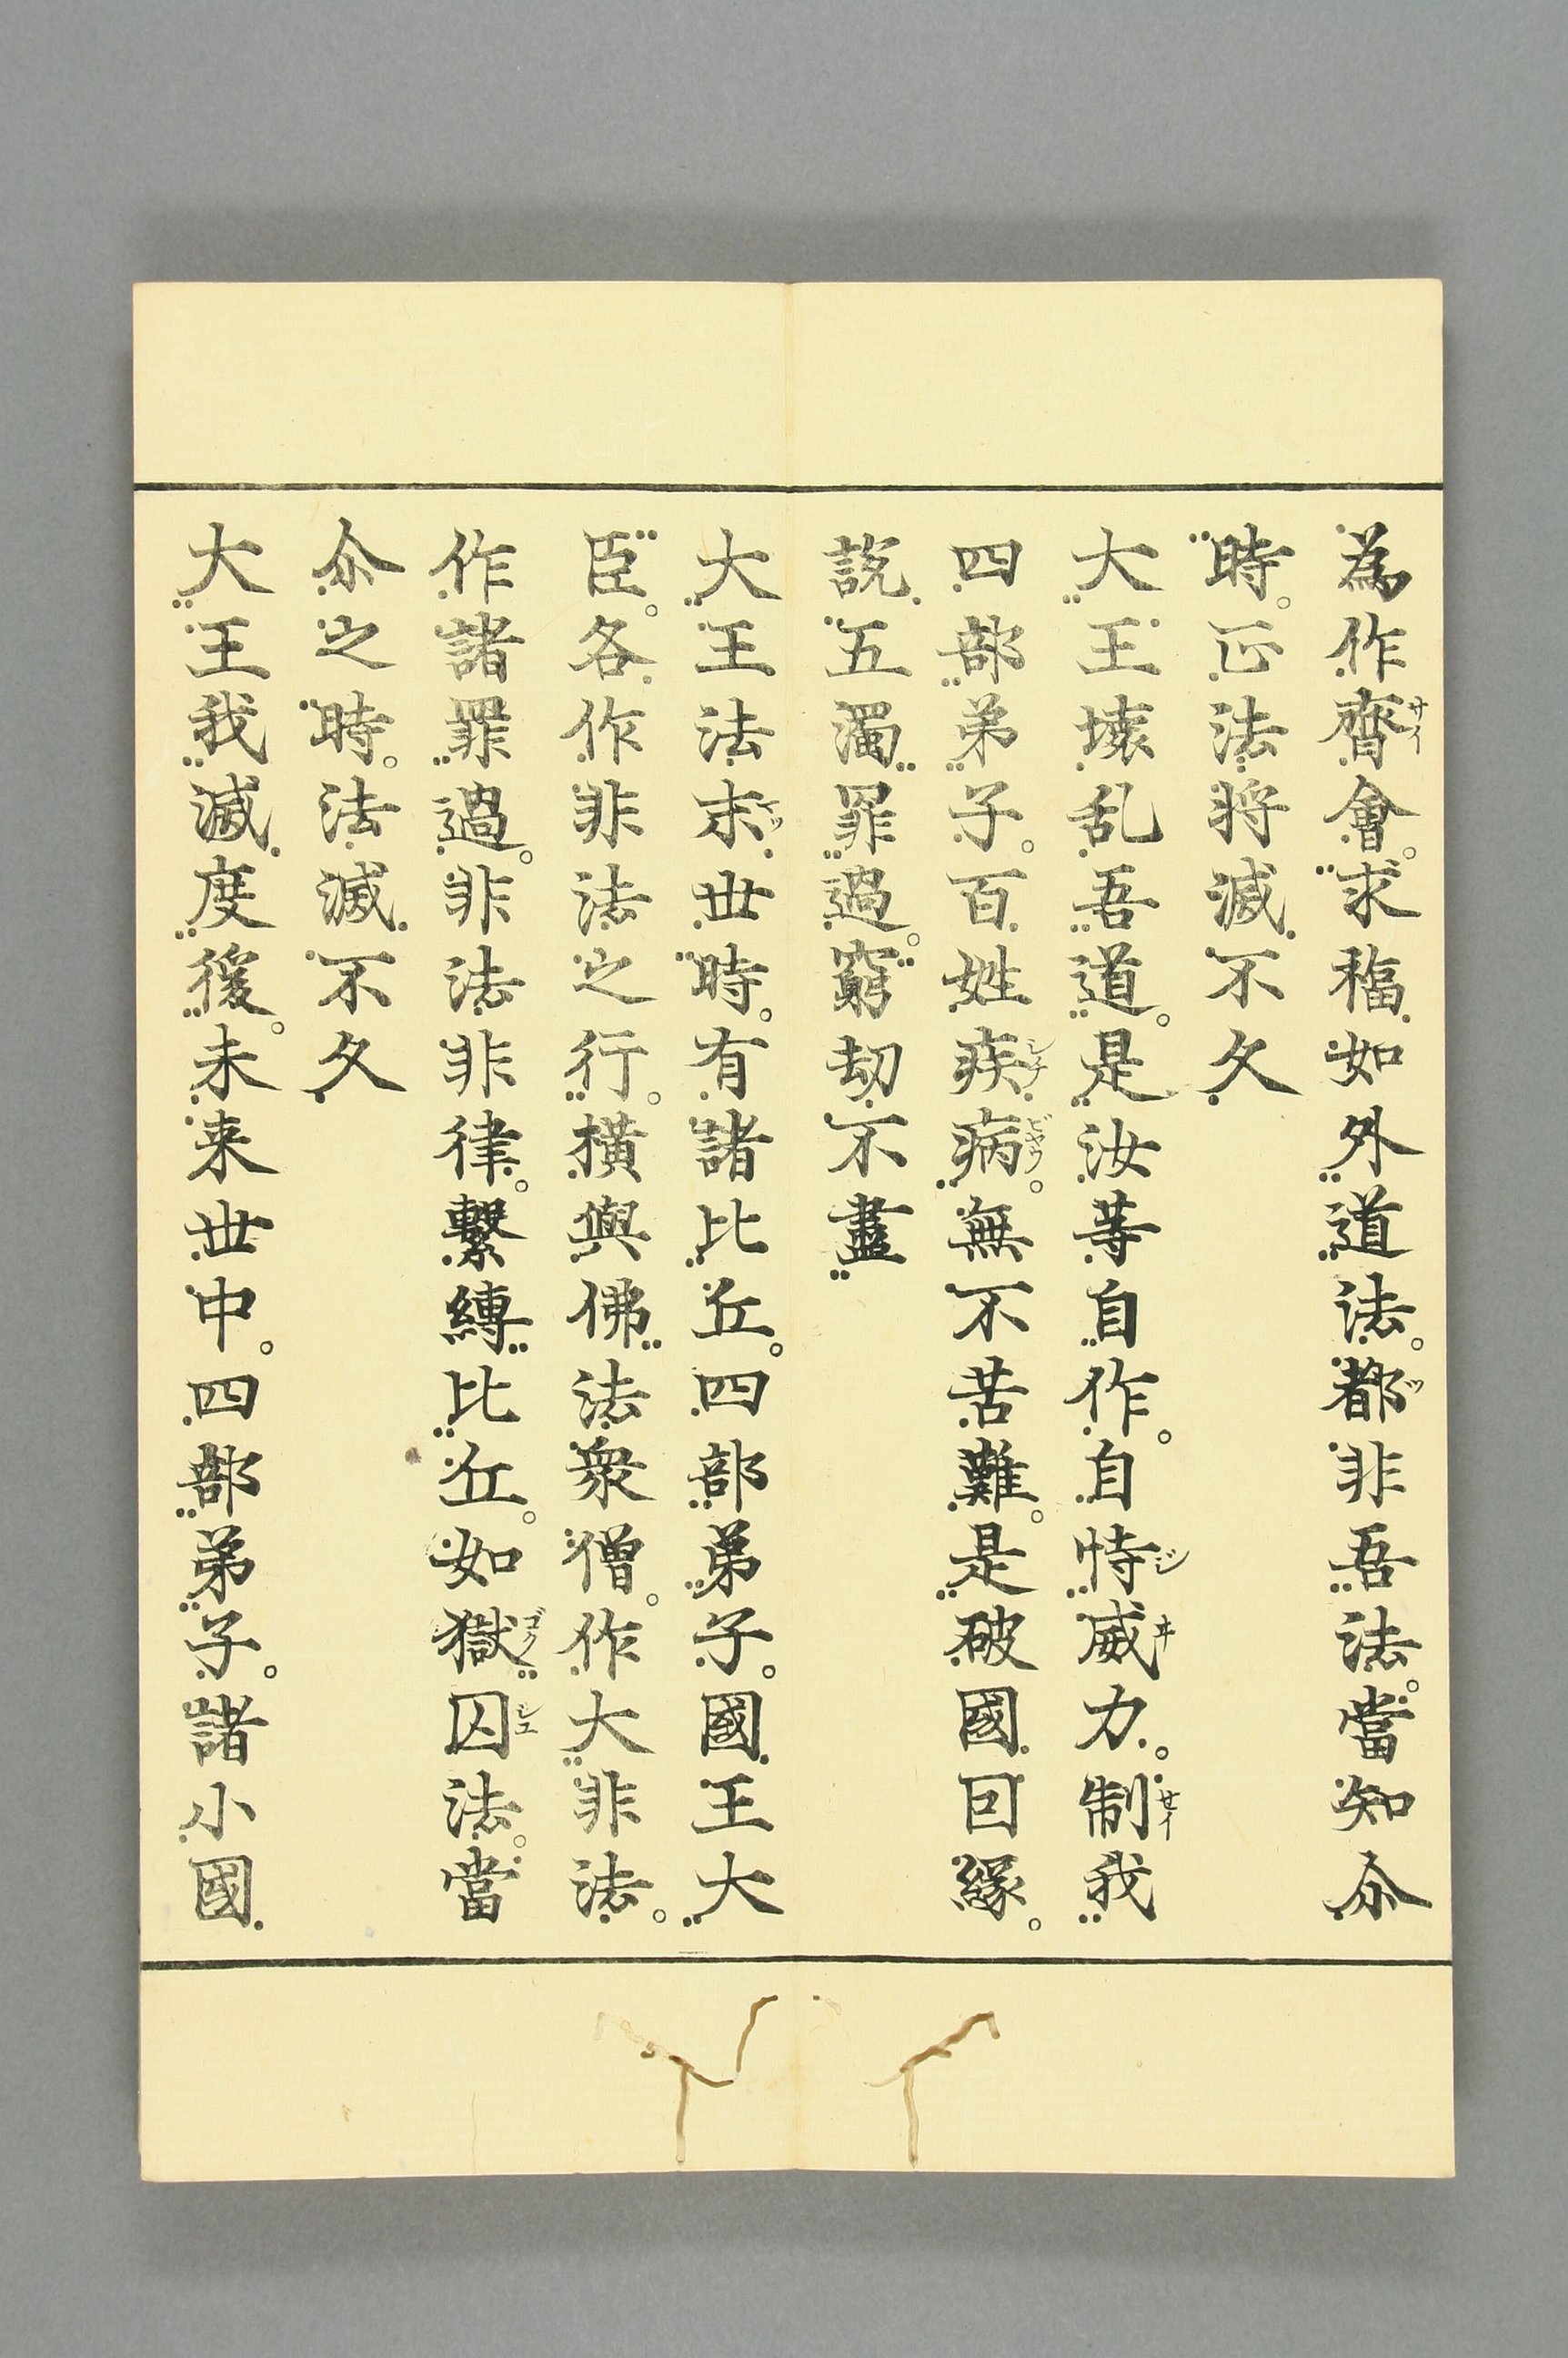 為作齊會。求福如外道法。都非吾法。當知尒
時。正法将滅不久
大王壊乱吾道。是汝等自作。自恃威力。制我
四部弟子。百姓疾病。無不苦難。是破國因緣。
説五濁罪過。窮劫不盡
大王法末世時。有諸比丘。四部弟子。國王大
臣。各作非法之行。横與佛法衆僧。作大非法。
作諸罪過。非法非律。繫縛比丘。如獄囚法。當
尒之時。法滅不久
大王我滅度後。未来世中。四部弟子。諸小國